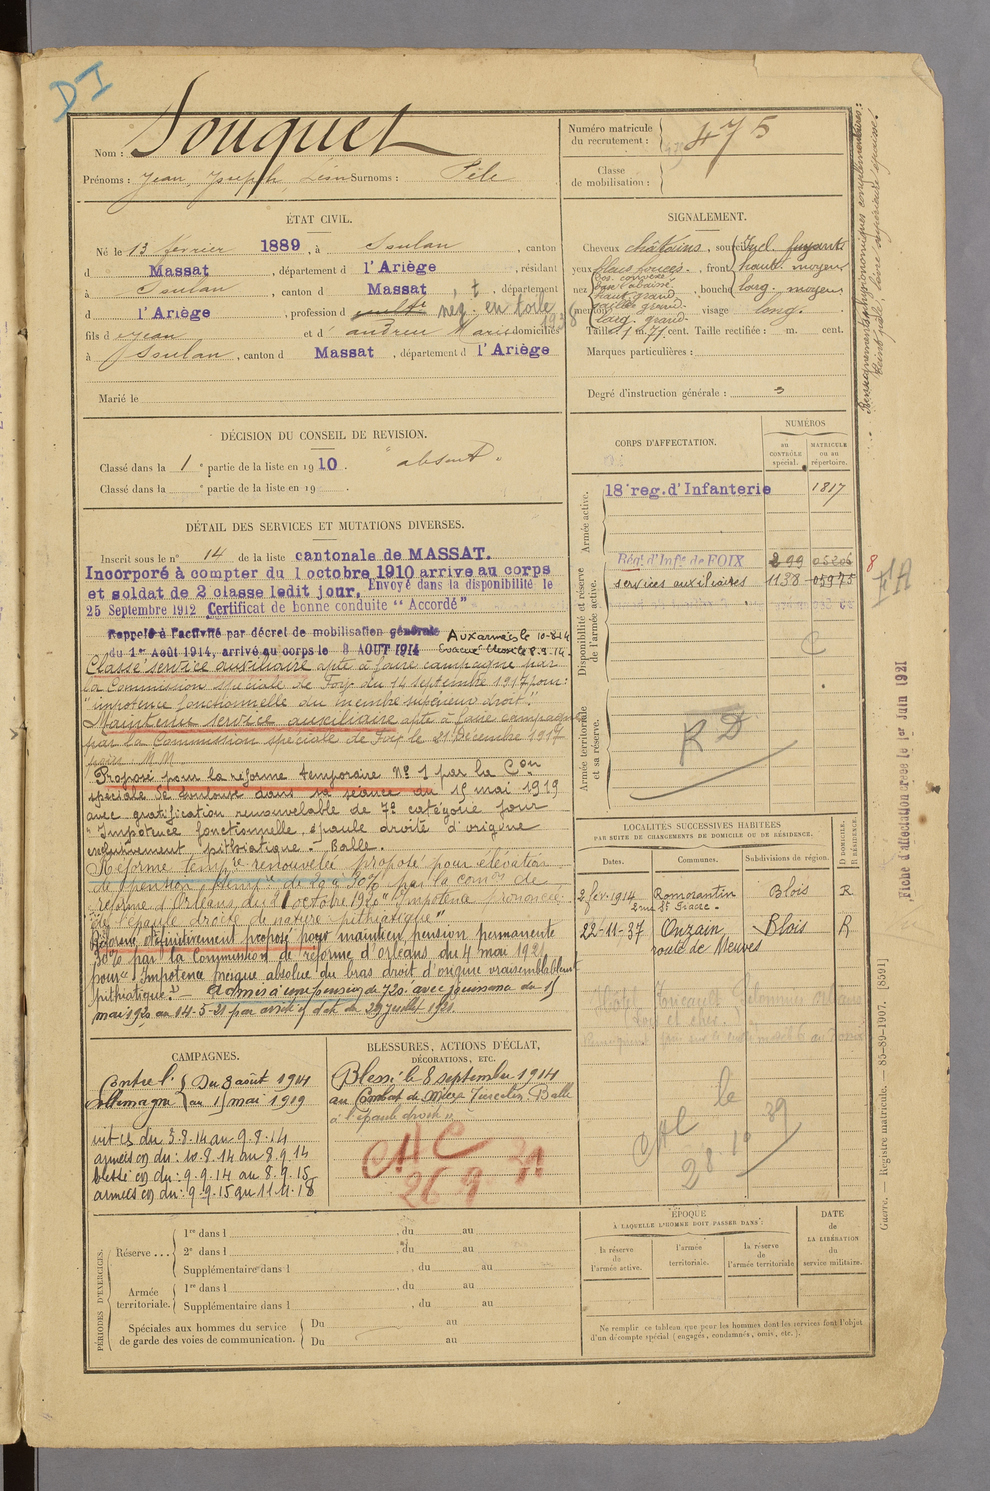 DI
Nom : Souquet
Prénoms : Jean, Joseph, Léon Surnoms : Pèle
Numéro matricule du recrutement : 475
Classe de mobilisation :
ÉTAT CIVIL.
Né le 13 février 1889, à Soulan, canton
d Massat, département d l'Ariège, résidant
à Soulan, canton d Massat, département
d l'Ariège, profession d nég. en toile
fils d Jean et d' andreu Marie domiciliés
à Soulan, canton d Massat, département d l'Ariège
Marié le
SIGNALEMENT.
Cheveux châtains, sourc
yeux, front haut. moyen
nez, bouche larg. moyen
menton, visage long.
Taille 1 m. 77 cent. Taille rectifiée : m. cent.
Marques particulières :
Degré d'instruction générale : 3
Renseignements physionomiques complémentaires :
DÉCISION DU CONSEIL DE REVISION.
Classé dans la 1e partie de la liste en 1910. "absent"
Classé dans la e partie de la liste en 19
CORPS D'AFFECTATION.
NUMÉROS
au CONTRÔLE spécial.
MATRICULE ou au répertoire.
Armée active.
18e reg. d'Infanterie 1817
Disponibilité et réserve de l'armée active.
Régt d'Infie de FOIX 299
services auxiliaires 1138 05975
C
Armée territoriale et sa réserve.
RD
8
FA
Fiche d'affectation créée le 1er Juin 1921
DÉTAIL DES SERVICES ET MUTATIONS DIVERSES.
Inscrit sous le n° 14 de la liste cantonale de MASSAT.
Incorporé à compter du 1 octobre 1910 arrive au corps
et soldat de 2 classe ledit jour. Envoyé dans la disponibilité le
25 Septembre 1912 Certificat de bonne conduite "Accordé"
Rappelé à l'activité par décret de mobilisation générale Aux armées le 10-8-14
du 1er Août 1914, arrivé au corps le 3 AOUT 1914 Evacué blessé le 8.9.14.
Classé service auxiliaire apte à faire campagne par
la Commission spéciale de Foix du 14 septembre 1917 pour :
"impotence fonctionnelle du membre supérieur droit".
Maintenu service auxiliaire apte à faire campagne
par la Commission spéciale de Foix le 21 Décembre 1917
pour M.M.
Proposé pour la réforme temporaire N° 1 par la Con
spéciale de Toulouse dans sa séance du 15 mai 1919
avec gratification renouvelable de 7e catégorie pour
"Impotence fonctionnelle, épaule droite d'origine
exclusivement pithiatique" - Balle.
Réforme tempre renouvelée proposé pour élévation
de pension tempre de 20 à 30% par la comon de
réforme d'Orléans du 21 octobre 1920 "Impotence prononcée
de l'épaule droite de nature pithiatique"
Réforme définitivement proposé pour maintien pension permanente
30% par la Commission de réforme d'Orléans du 4 mai 1921
pour "Impotence presque absolue du bras droit d'origine vraisemblablement
pithiatique." - Admis à une pension de 720f avec jouissance du 15
mai 1920 au 14-5-21 par arrêté d'état du 29 juillet 1921.
LOCALITÉS SUCCESSIVES HABITÉES
PAR SUITE DE CHANGEMENTS DE DOMICILE OU DE RÉSIDENCE.
Dates. Communes. Subdivisions de région. D DOMICILE. R RÉSIDENCE.
2 fév. 1914 Romorantin Blois R
2 rue St Fiacre.
22-11-37 Onzain Blois R
route de Meuves
CAC le
28.10 39
CAMPAGNES.
Contre l'Allemagne { Du 3 août 1914
au 15 mai 1919
int CS du 3.8.14 au 9.8.14
armées CD du : 10.8.14 au 8.9.14
blessé CD du : 9.9.14 au 8.9.15
armées CD du : 9.9.15 au 11.11.18
BLESSURES, ACTIONS D'ÉCLAT, DÉCORATIONS, ETC.
Blessé le 8 septembre 1914
au Combat de Balle
à l'épaule droite
CAC
26 9
PÉRIODES D'EXERCICES.
Réserve ... 1re dans l , du au
2e dans l , du au
Supplémentaire dans l , du au
Armée territoriale. 1re dans l , du au
Supplémentaire dans l , du au
Spéciales aux hommes du service de garde des voies de communication. Du au
Du au
ÉPOQUE
À LAQUELLE L'HOMME DOIT PASSER DANS :
la réserve de l'armée active.
l'armée territoriale.
la réserve de l'armée territoriale
DATE de LA LIBÉRATION du service militaire.
Ne remplir ce tableau que pour les hommes dont les services font l'objet
d'un décompte spécial (engagés, condamnés, omis, etc.).
Guerre. — Registre matricule. — 85-89-1907. [8591]